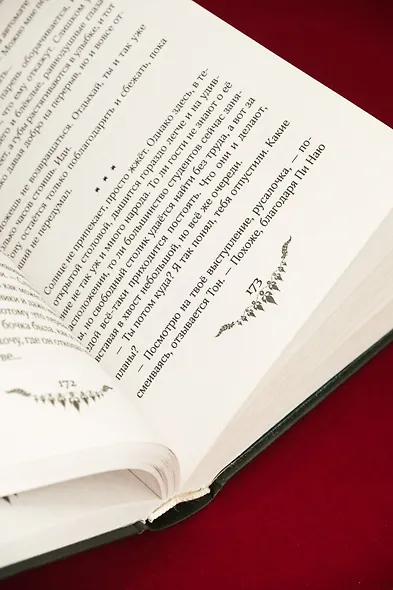 бочка была
172
автомате
Можно мне
парень оборачивается,
что ему откажут. Слишком у
и блёклые, равнодушные глаза
а губы растягиваются в улыбке, и тот
давая добро на перерыв, но и вовсе от-
можешь не возвращаться. Отдыхай, ты и так уже
только часов стоишь. Иди.
остаётся только поблагодарить и сбежать, пока
не передумал.
* * *
Солнце не припекает, просто жжёт. Однако здесь, в те-
открытой столовой, дышится гораздо легче и на удив-
не так уж и много народа. То ли гости не знают о её
расположении, то ли большинство студентов сейчас заня-
ты, но свободный столик удаётся найти без труда, а вот за
едой всё-таки приходится постоять. Что они и делают,
вставая в хвост небольшой, но всё же очереди.
— Ты потом куда? Я так понял, тебя отпустили. Какие
планы?
— Посмотрю на твоё выступление, русалочка, — по-
смеиваясь, отзывается Тон. — Похоже, благодаря Пи Наю
173